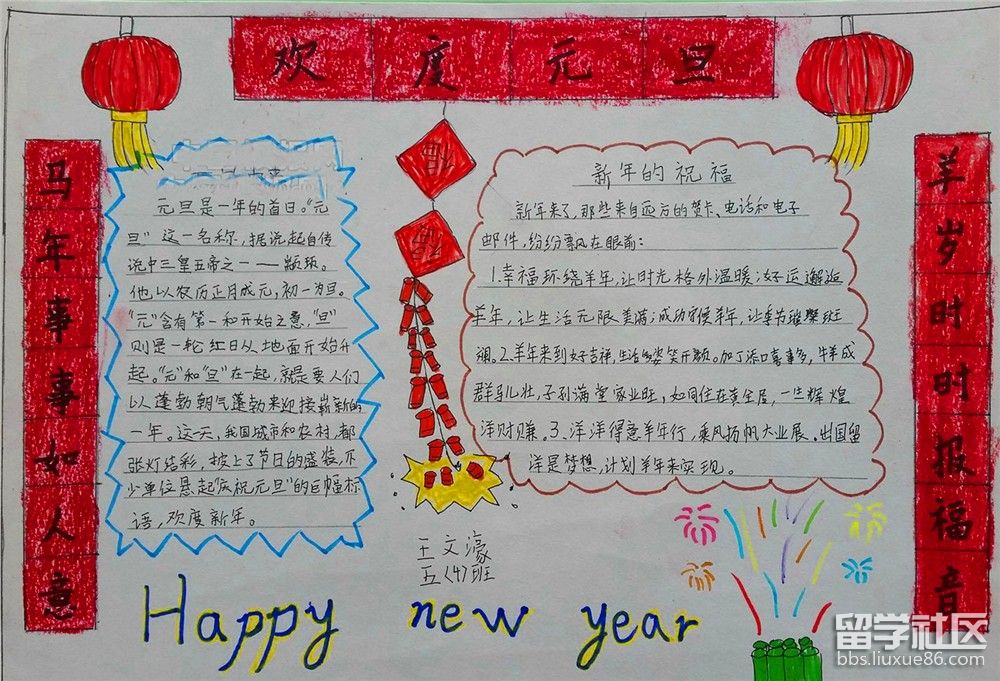 欢度元旦
马年事事如人意
元旦是一年的首日。“元
旦”这一名称，据说起自传
说中三皇五帝之一——颛顼。
他以农历正月成元，初一为旦。
“元”含有第一和开始之意，“旦”
则是一轮红日从地面开始升
起。“元”和“旦”在一起，就是要人们
以蓬勃朝气蓬勃来迎接崭新的
一年。这一天，我国城市和农村，都
张灯结彩，披上了节日的盛装，不
少单位悬起“庆祝元旦”的巨幅标
语，欢度新年。
福
福
新年的祝福
新年来了，那些来自远方的贺卡、电话和电子
邮件，纷纷飘在眼前：
1.幸福环绕羊年，让时光格外温暖；好运邂逅
羊年，让生活无限美满；成功守候羊年，让事为璀璨斑
斓。2.羊年来到好吉祥，生活多姿笑开颜。加丁添口喜事多，牛羊成
群马儿壮，子孙满堂家业旺，如同住在黄金屋，一生辉煌
洋财赚。3.洋洋得意羊年行，乘风扬帆大业展。出国留
洋是梦想，计划羊年来实现。
羊岁时时报福音
王文濠
五〈4〉班
Happy new year
留学社区
bbs.liuxue86.com